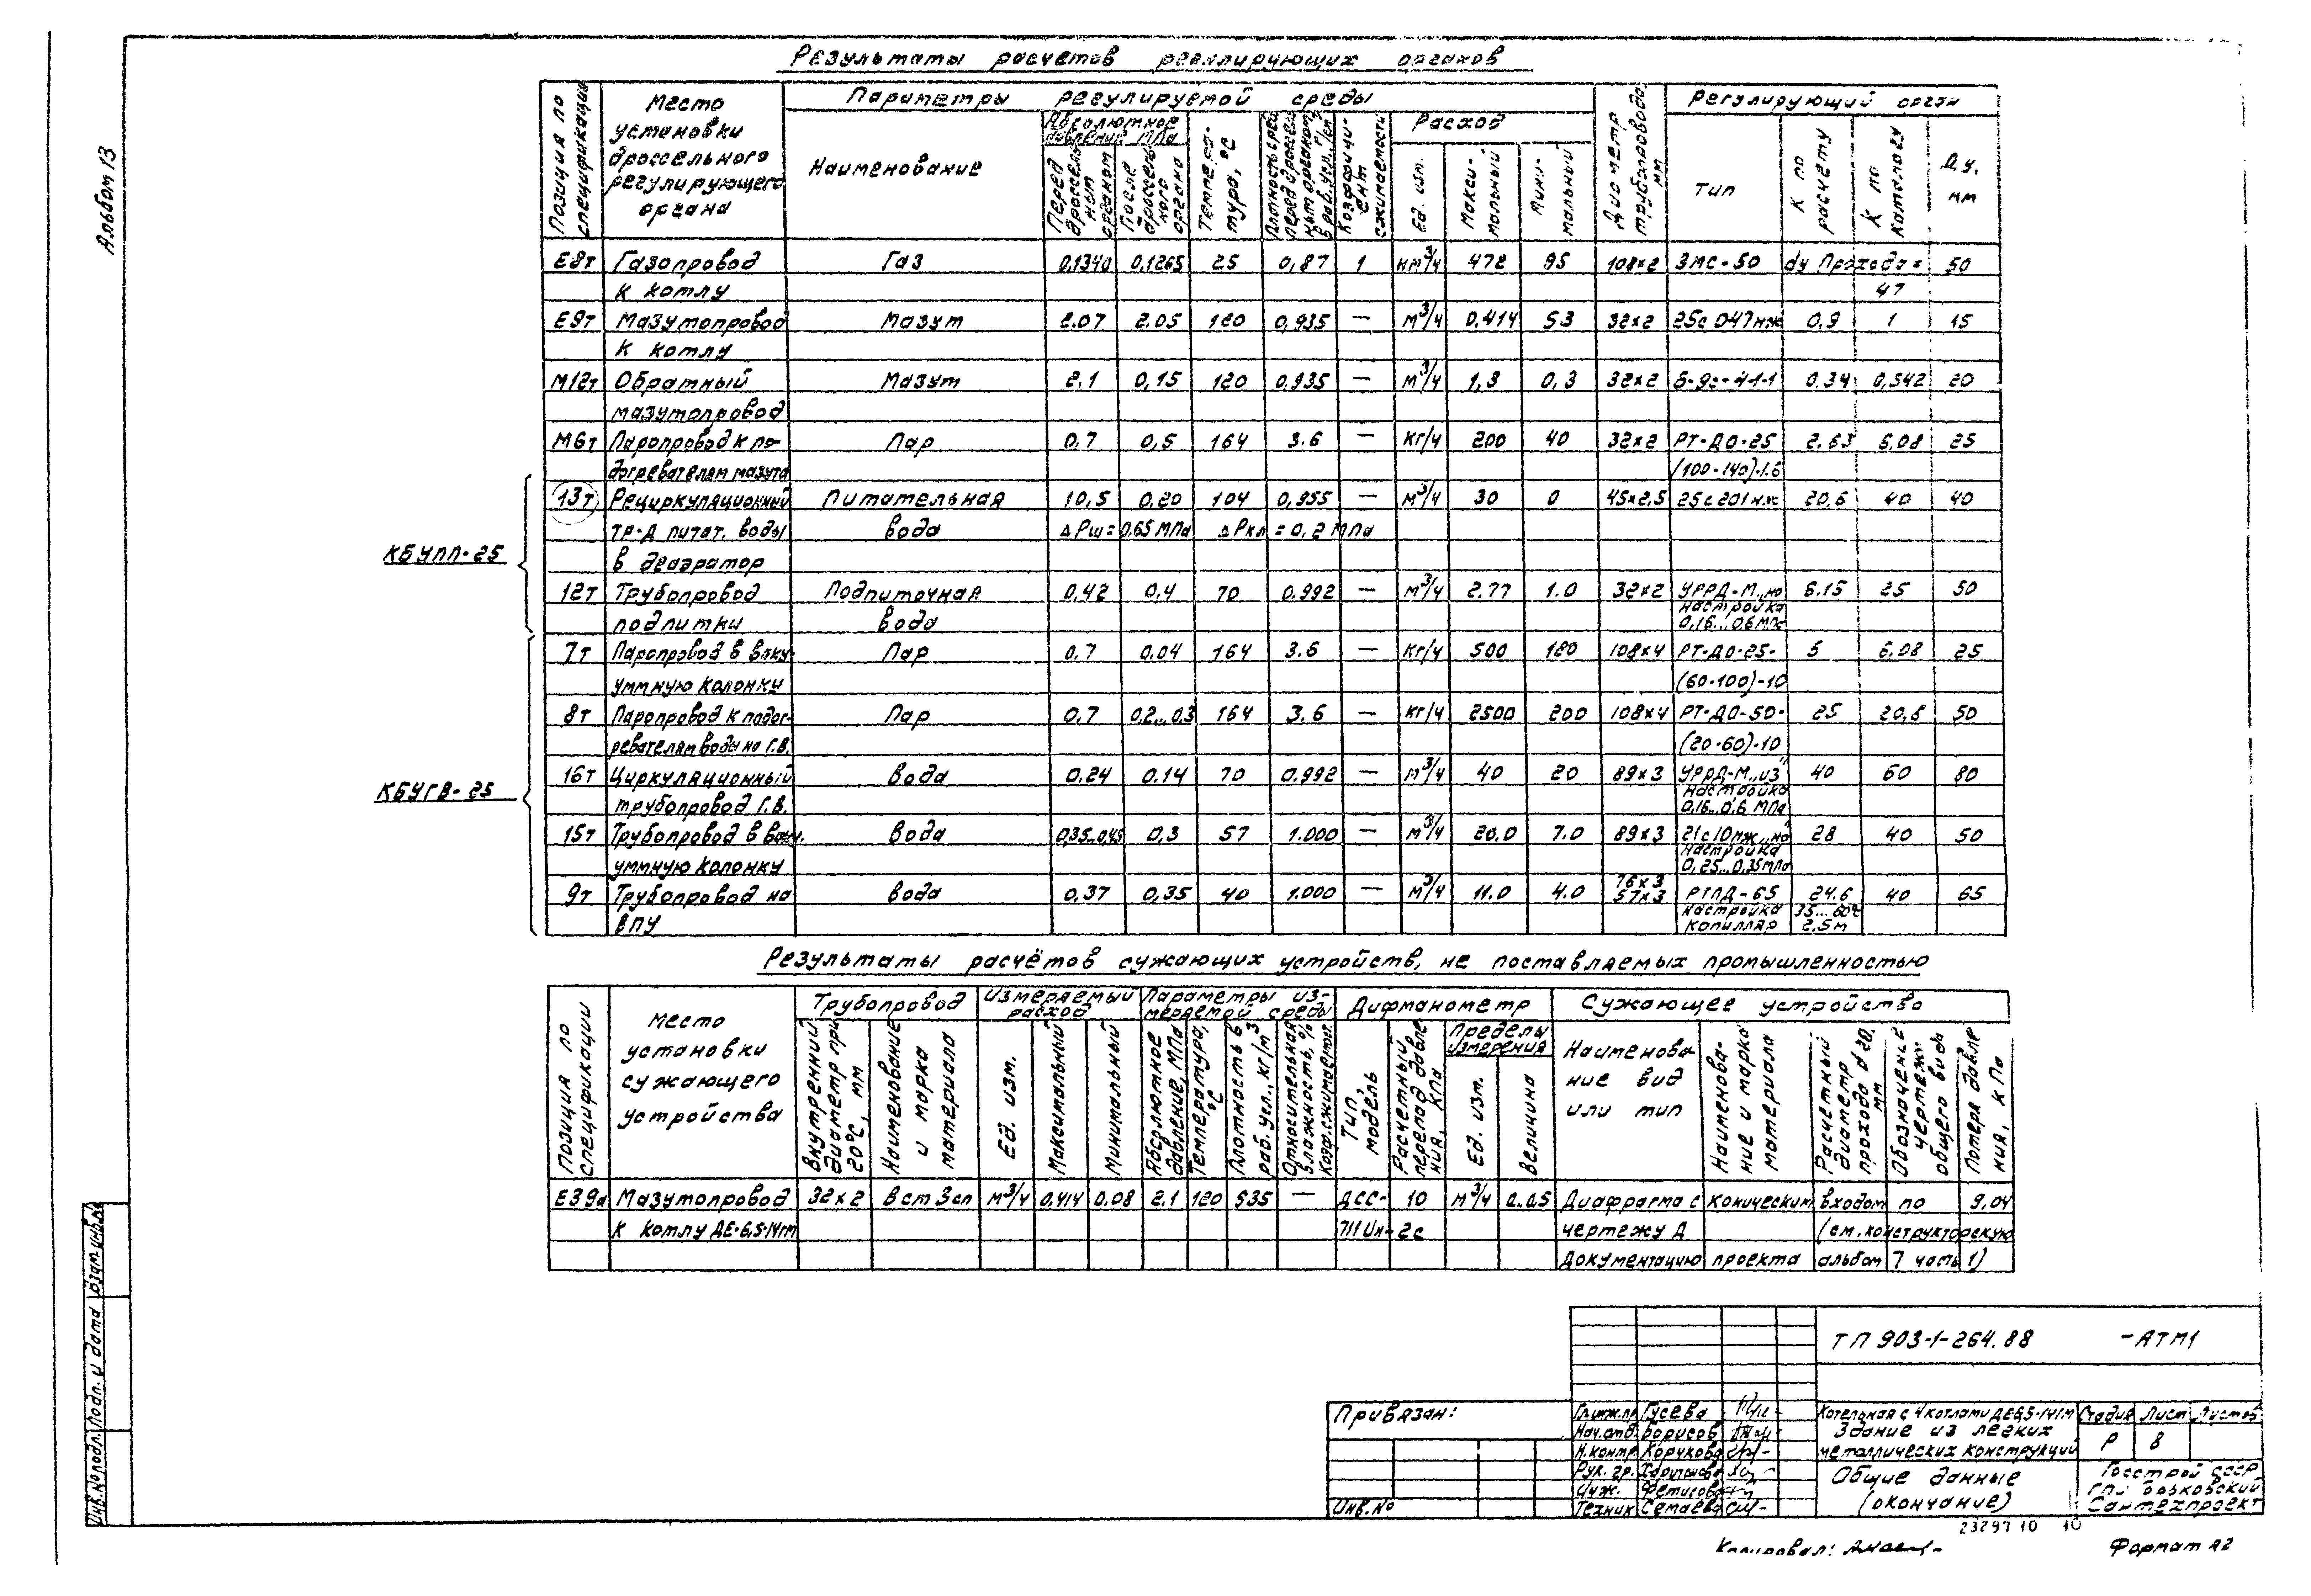 Альбом 13
Результаты расчетов регулирующих органов
Позиция по спецификации
Место установки дроссельного регулирующего органа
Параметры регулируемой среды
Наименование
Абсолютное давление МПа
Перед дроссельным органом
После дроссельного органа
Температура, °С
Коэффициент сжимаемости
Расход
Ед. изм.
Максимальный
Минимальный
Диаметр трубопровода, мм
Регулирующий орган
Тип
К по расчету
К по каталогу
Ду, мм
Е8т Газопровод Газ 0,1340 0,1265 25 0,87 1 нм³/ч 472 95 108×2 ЗМС-50 dу прохода = 50
к котлу 47
Е9т Мазутопровод Мазут 2.07 2.05 120 0,935 — м³/ч 0.414 53 32×2 25с 047нж 0,9 1 15
к котлу
М12т Обратный Мазут 2.1 0,15 120 0,935 — м³/ч 1,3 0,3 32×2 0,34 0,542 20
мазутопровод
М6т Паропровод к по- Пар 0.7 0,5 164 3.6 — кг/ч 200 40 32×2 РТ-ДО-25 2.63 6,08 25
догревателям мазута (100-140)-1.6
КБУПП-25
13т Рециркуляционный Питательная 10,5 0,20 104 0,955 — м³/ч 30 0 45×2,5 25с201нж 20,6 40 40
тр-д питат. воды вода ΔРш = 0.65 МПа ΔРкл = 0,2 МПа
в деаэратор
12т Трубопровод Подпиточная 0,42 0,4 70 0.992 — м³/ч 2.77 1.0 32×2 УРРД-М „но 6.15 25 50
подпитки вода настройка 0,16...0,6 МПа
КБУГВ-25
7т Паропровод в ваку- Пар 0.7 0,04 164 3.6 — кг/ч 500 180 108×4 РТ-ДО-25- 5 6,08 25
уммную колонку (60-100)-10
8т Паропровод к подог- Пар 0,7 0,2...0,3 164 3,6 — кг/ч 2500 200 108×4 РТ-ДО-50- 25 20,8 50
ревателям воды на Г.В. (20-60)-10
16т Циркуляционный вода 0,24 0.14 70 0.992 — м³/ч 40 20 89×3 УРРД-М „из 40 60 80
трубопровод Г.В. настройка 0.16...0.6 МПа
15т Трубопровод в вак. вода 0,35...0,45 0,3 57 1.000 — м³/ч 20.0 7.0 89×3 21с10нж „но" 28 40 50
уммную колонку настройка 0,25...0,35 МПа
9т Трубопровод на вода 0,37 0,35 40 1.000 — м³/ч 11.0 4.0 76×3 57×3 РТПД-65 24.6 40 65
ВПУ настройка 35...60°С
капилляр 2.5м
Результаты расчётов сужающих устройств, не поставляемых промышленностью
Позиция по спецификации
Место установки сужающего устройства
Трубопровод
Внутренний диаметр при 20°С, мм
Наименование и марка материала
Измеряемый расход
Ед. изм.
Максимальный
Минимальный
Параметры измеряемой среды
Абсолютное давление, МПа
Температура, °С
Плотность в раб. усл., кг/м³
Относительная влажность, %
Коэф. сжимаемост.
Дифманометр
Тип, модель
Расчетный перепад давления, кПа
Пределы измерения
Ед. изм.
Величина
Сужающее устройство
Наименование вид или тип
Наименование и марка материала
Расчетный диаметр прохода d 20, мм
Обозначение чертежа общего вида
Потеря давления, кПа
Е39а Мазутопровод 32×2 В ст 3сп м³/ч 0.414 0.08 2.1 120 935 — ДСС- 10 м³/ч 0..0.5 Диафрагма с коническим входом по 9.04
к котлу ДЕ-6,5-14гм 711Ин-2с чертежу Д (см. конструкторскую
документацию проекта альбом 7 часть 1)
ТП 903-1-264.88 -АТМ1
Привязан:
Инв.№
Гл.инж.пр Гусева
Нач.отд. Борисов
Н.контр. Корукова
Рук. гр. Харитонова
Инж. Фетисова
Техник Семаева
Котельная с 4 котлами ДЕ6,5-14ГМ
Здание из легких
металлических конструкций
Стадия Лист Листов
Р 8
Общие данные
(окончание)
Госстрой СССР
ГПИ Горьковский
Сантехпроект
23297 10 10
Копировал:
Формат А2
Инв.№ подл. Подп. и дата Взам.инв.№